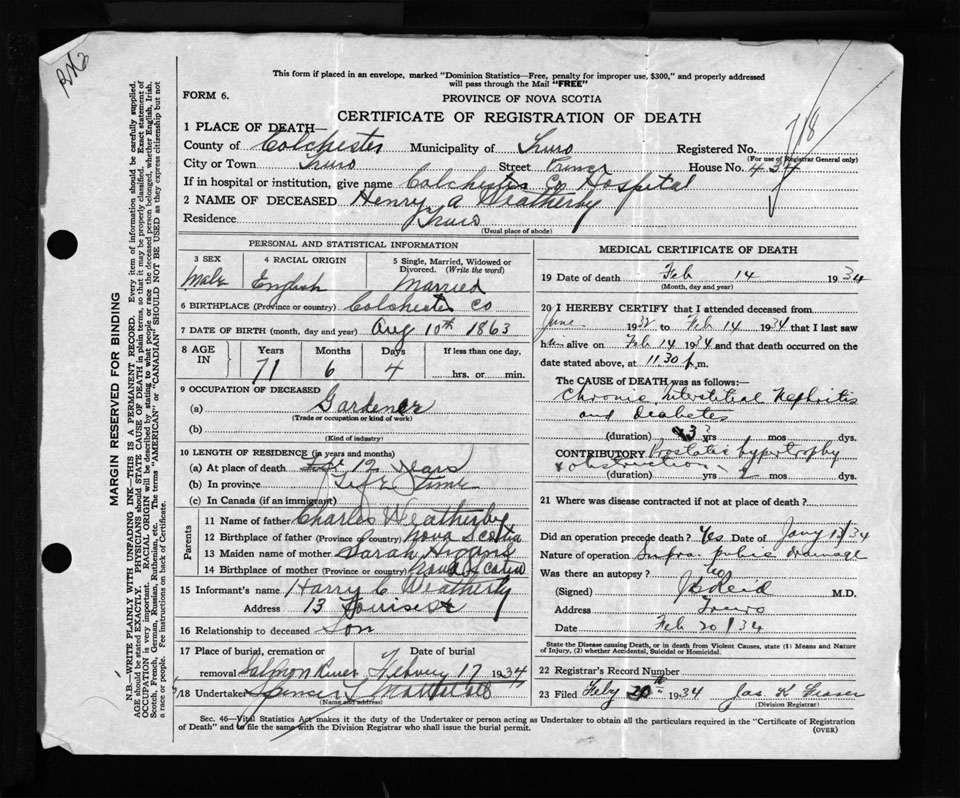 This form if placed in an envelope, marked "Dominion Statistics—Free, penalty for improper use, $300," and properly addressed
will pass through the Mail "FREE"
FORM 6.
PROVINCE OF NOVA SCOTIA
CERTIFICATE OF REGISTRATION OF DEATH
718
1 PLACE OF DEATH—
County of Colchester Municipality of Truro Registered No.
(For use of Registrar General only)
City or Town Truro Street Prince House No. 434
If in hospital or institution, give name Colchester Co Hospital
2 NAME OF DECEASED Henry A Weatherby
Residence Truro
(Usual place of abode)
PERSONAL AND STATISTICAL INFORMATION
3 SEX 4 RACIAL ORIGIN 5 Single, Married, Widowed or
Divorced. (Write the word)
Male English Married
6 BIRTHPLACE (Province or country) Colchester Co
7 DATE OF BIRTH (month, day and year) Aug 10th 1863
8 AGE IN Years Months Days If less than one day,
71 6 4 hrs. or min.
9 OCCUPATION OF DECEASED
(a) Gardener
(Trade or occupation or kind of work)
(b)
(Kind of industry)
10 LENGTH OF RESIDENCE (in years and months)
(a) At place of death 12 years
(b) In province Life Time
(c) In Canada (if an immigrant)
Parents
11 Name of father Charles Weatherby
12 Birthplace of father (Province or country) Nova Scotia
13 Maiden name of mother Sarah Higgins
14 Birthplace of mother (Province or country) Nova Scotia
15 Informant's name Harry C Weatherby
Address 13 Louise St
16 Relationship to deceased Son
17 Place of burial, cremation or Date of burial
removal Salmon River Febury 17 1934
18 Undertaker Spencer
(Name and address)
MEDICAL CERTIFICATE OF DEATH
19 Date of death Feb 14 1934
(Month, day and year)
20 I HEREBY CERTIFY that I attended deceased from
June 1932 to Feb 14 1934 that I last saw
him alive on Feb 14 1934 and that death occurred on the
date stated above, at 11.30 p.m.
The CAUSE OF DEATH was as follows:—
Chronic Interstitial Nephritis
and Diabetes
(duration) 3 yrs mos dys.
CONTRIBUTORY Prostatic hypertrophy
& obstruction
(duration) yrs. 2 mos dys.
21 Where was disease contracted if not at place of death?
Did an operation precede death? Yes Date of Jany 34
Nature of operation Supra pubic drainage
Was there an autopsy? no
(Signed) J B Reid M.D.
Address Truro
Date Feb 20/34
State the Disease causing Death, or in death from Violent Causes, state (1) Means and Nature
of Injury, (2) whether Accidental, Suicidal or Homicidal.
22 Registrar's Record Number
23 Filed Feby 20th 1934 Jas. K Fraser
(Division Registrar)
Sec. 46—Vital Statistics Act makes it the duty of the Undertaker or person acting as Undertaker to obtain all the particulars required in the "Certificate of Registration
of Death" and to file the same with the Division Registrar who shall issue the burial permit.
(OVER)
MARGIN RESERVED FOR BINDING
N.B.—WRITE PLAINLY WITH UNFADING INK—THIS IS A PERMANENT RECORD. Every item of information should be carefully supplied.
AGE should be stated EXACTLY. PHYSICIANS should STATE CAUSE OF DEATH in plain terms, so that it may be properly classified. Exact statement of
OCCUPATION is very important. RACIAL ORIGIN will be described by stating to what people or race the deceased person belonged, whether English, Irish,
Scotch, French, German, Russian, Ruthenian, etc. The terms "AMERICAN" or "CANADIAN" SHOULD NOT BE USED as they express citizenship but not
a race or people. Fee instructions on back of Certificate.